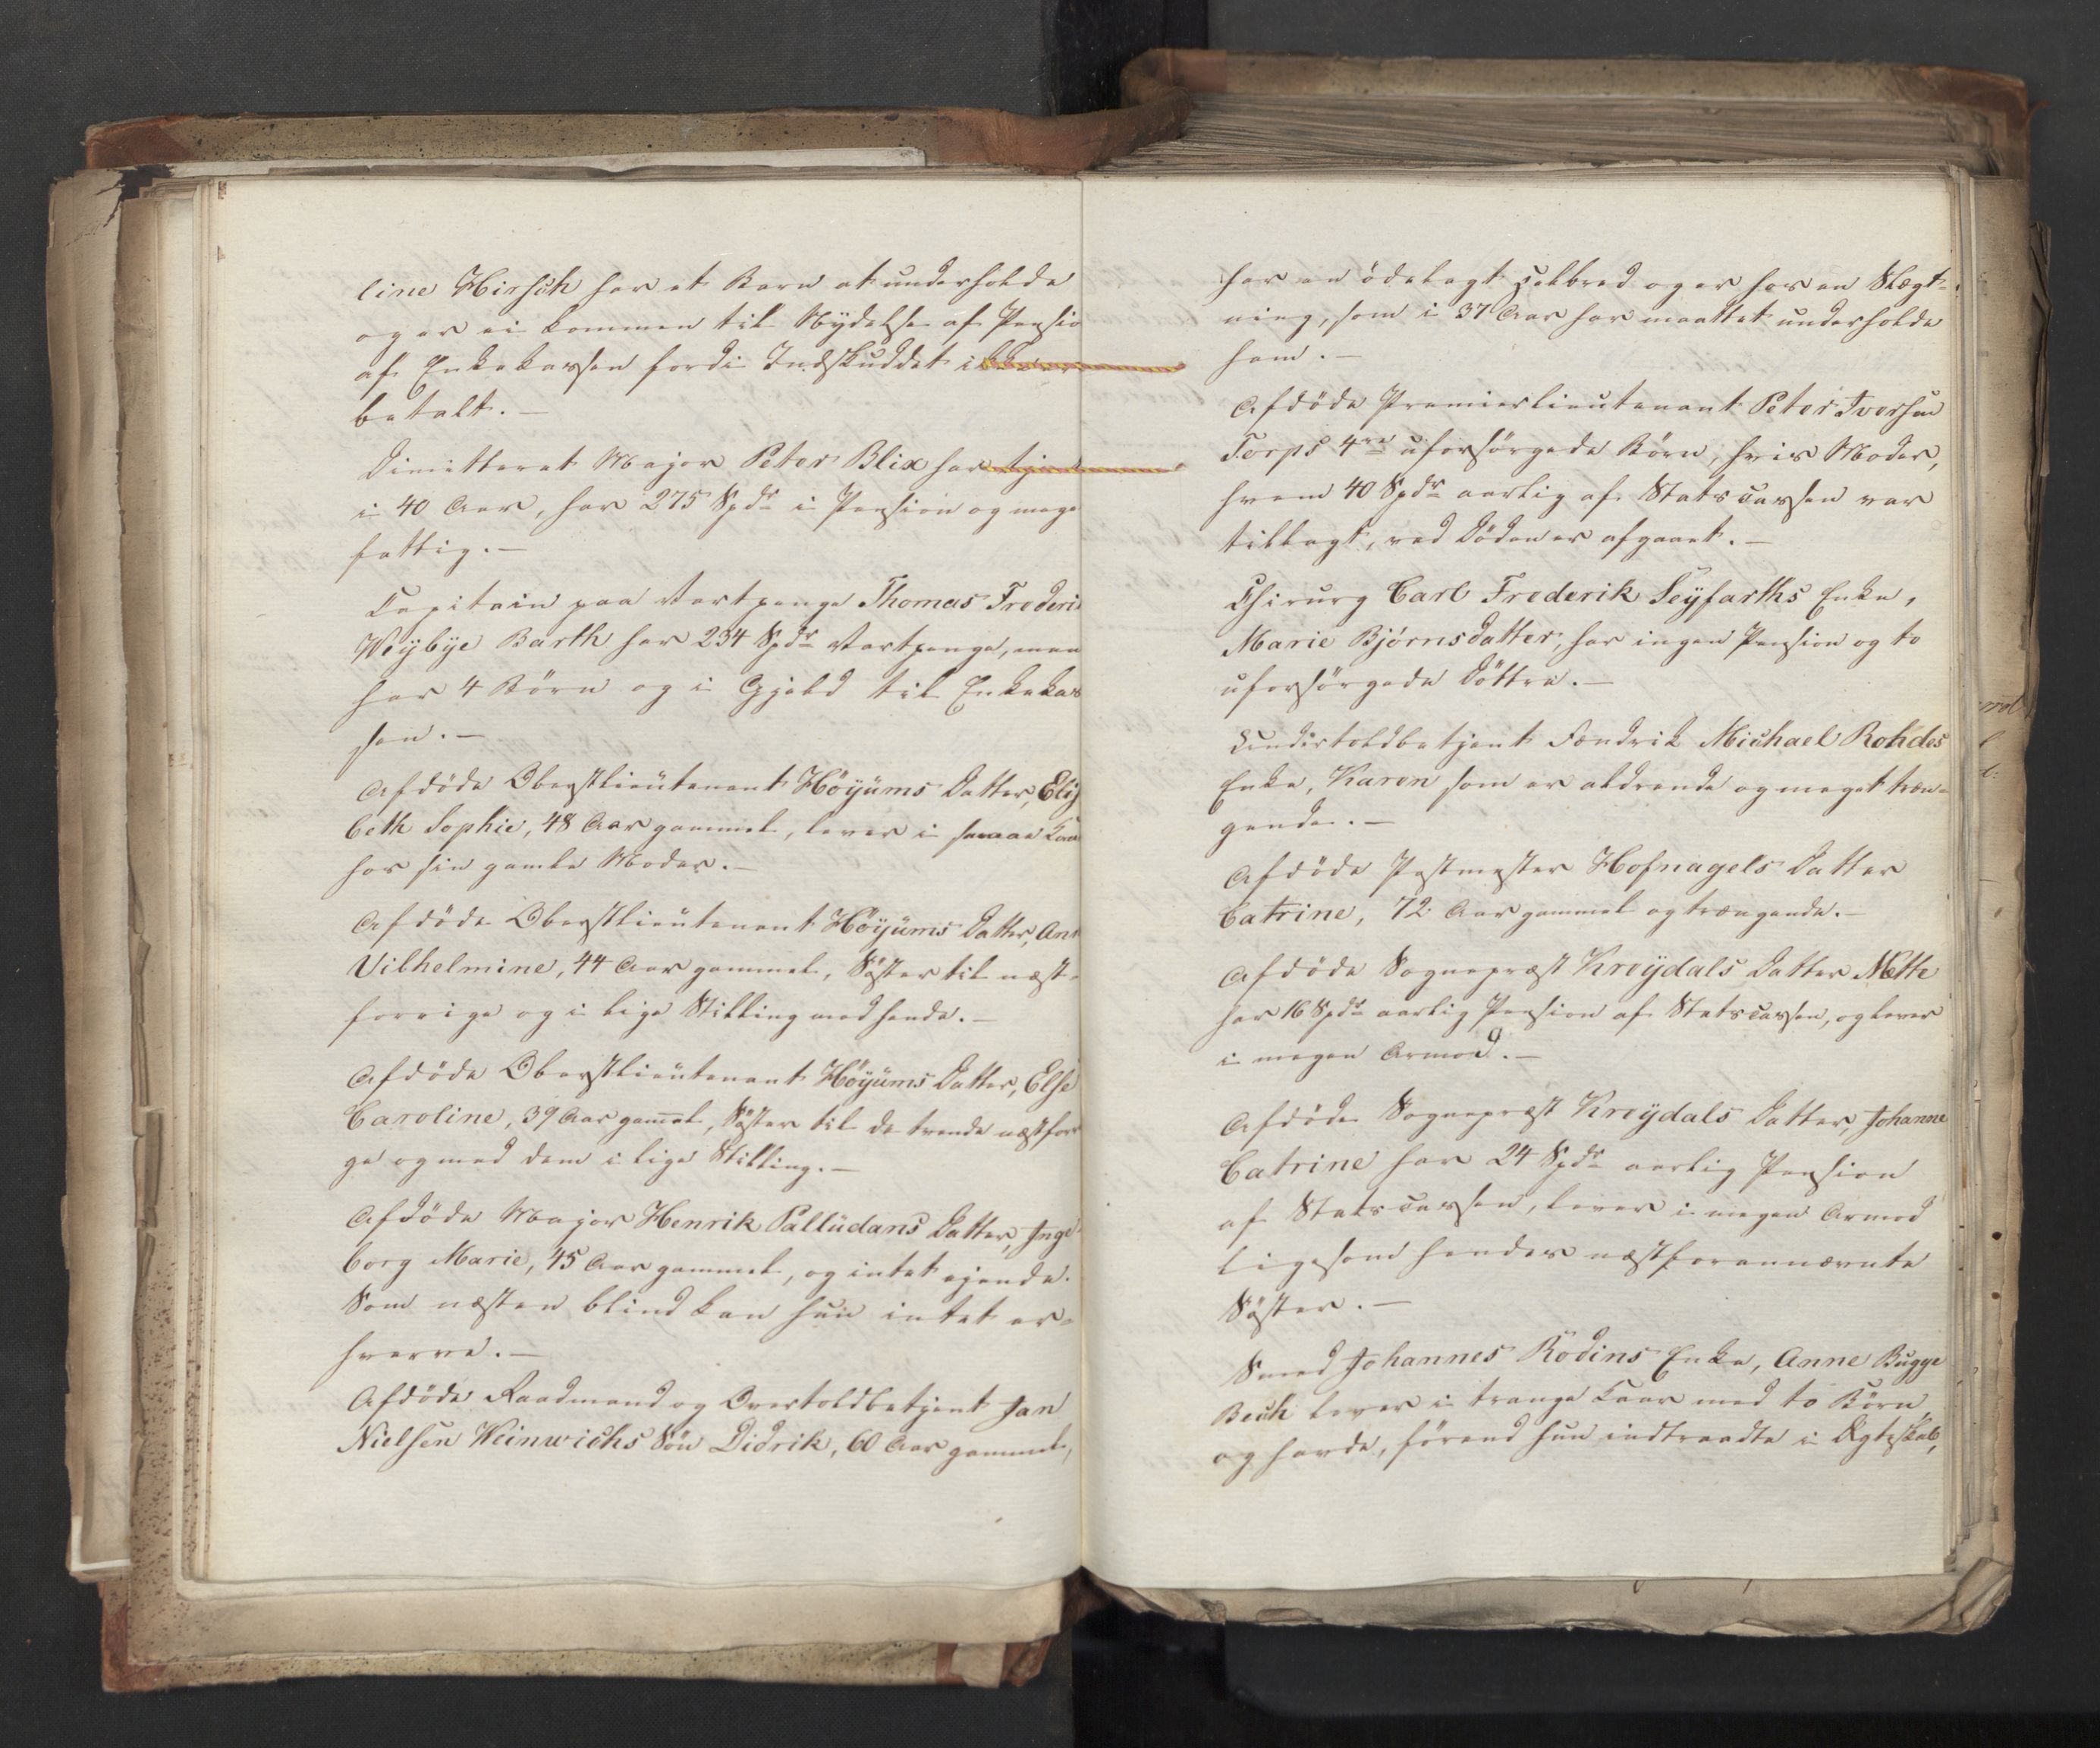 line Hirsch har et Barn at underholde
og er ei kommen til Nydelse af Pensio
af Enkekassen fordi Indskuddet ikke
betalt. —
Dimitteret Major Peter Blix har tjent
i 40 Aar, har 275 Spdr i Pension og mege
fattig. —
Capitain paa Vartpenge Thomas Frederi
Weÿbÿe Barth har 234 Spdr Vartpenge, men
har 4 Börn og i Gjæld til Enkekas
sen. —
Afdöde Oberstlieutenant Höÿums Datter, Elis
beth Sophie, 48 Aar gammel, lever i smaae Kaar
hos sin gamle Moder. —
Afdöde Oberstlieutenant Höÿums Datter, Ann
Vilhelmine, 44 Aar gammel, Söster til næst-
forrige og i lige Stilling med hende. —
Afdöde Oberstlieutenant Höÿums Datter, Else
Caroline, 39 Aar gam̄el, Söster til de tvende næstforr
ge og med dem i lige Stilling. —
Afdöde Major Henrik Palludans Datter, Inge
borg Marie, 45 Aar gammel, og intet ejende.
Som næsten blind kan hun intet er-
hverve. —
Afdöde Raadmand og Overtoldbetjent Jan
Nielsen Weinwichs Sön Didrik, 60 Aar gammel,
har en ödelagt Helbred og er hos en Slægt-
ning, som i 37 Aar har maattet underholde
ham. —
Afdöde Premierlieutenant Peter Iversen
Torps 4re uforsörgede Börn, hvis Moder,
hvem 40 Spdr aarlig af Statscassen var
tillagt, ved Döden er afgaaet. —
Chirurg Carl Frederik Seÿfarths Enke,
Marie Björnsdatter, har ingen Pension og to
uforsörgede Döttre. —
Undertoldbetjent Fændrik Michael Rohdes
Enke, Karen som er aldrende og meget træn-
gende. —
Afdöde Postmester Hofnagels Datter
Catrine, 72 Aar gammel og trængende. —
Afdöde Sognepræst Kroÿdals Datter Mette
har 16 Spdr aarlig Pension af Statscassen, og lever
i megen Armod. —
Afdöde Sognepræst Kroÿdals Datter, Johanne
Catrine har 24 Spdr aarlig Pension
af Statscassen, lever i megen Armod
ligesom hendes næstforannævnte
Söster. —
Smed Johannes Rödins Enke, Anne Bugge
Bech lever i trange Kaar med to Börn,
og havde, förend hun indtraadte i Ægteskab,